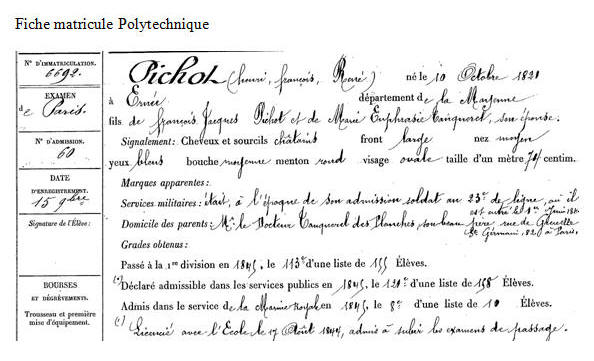 Fiche matricule Polytechnique
N° D'IMMATRICULATION.
6692.
EXAMEN
de Paris.
N° D'ADMISSION.
60
DATE
D'ENREGISTREMENT.
15 9bre
Signature de l'Élève:
BOURSES
ET DÉGRÈVEMENTS.
Trousseau et première
mise d'équipement.
Pichot (henri, françois, René) né le 10 Octobre 1821
à Ernée département de la Mayenne
fils de françois Jacques Pichot et de Marie Euphrasie Tanquerel, son épouse.
Signalement: Cheveux et sourcils châtains front large nez moyen
yeux bleus bouche moyenne menton rond visage ovale taille d'un mètre 74 centim.
Marques apparentes:
Services militaires: était, à l'époque de son admission soldat au 23e de ligne, où il
est entré le 1er
Domicile des parents: Mr. le Docteur Tanquerel des Planches son beau frère rue de Grenelle
St Germain, 82 à Paris.
Grades obtenus:
Passé à la 1re division en 1845, le 113e d'une liste de 155 Élèves.
Déclaré admissible dans les services publics en 1845, le 120e d'une liste de 158 Élèves.
Admis dans le service de la Marine Royale en 1845, le 8e d'une liste de 10 Élèves.
Licencié avec l'Ecole le 17 Août 1844, admis à subir les examens de passage.